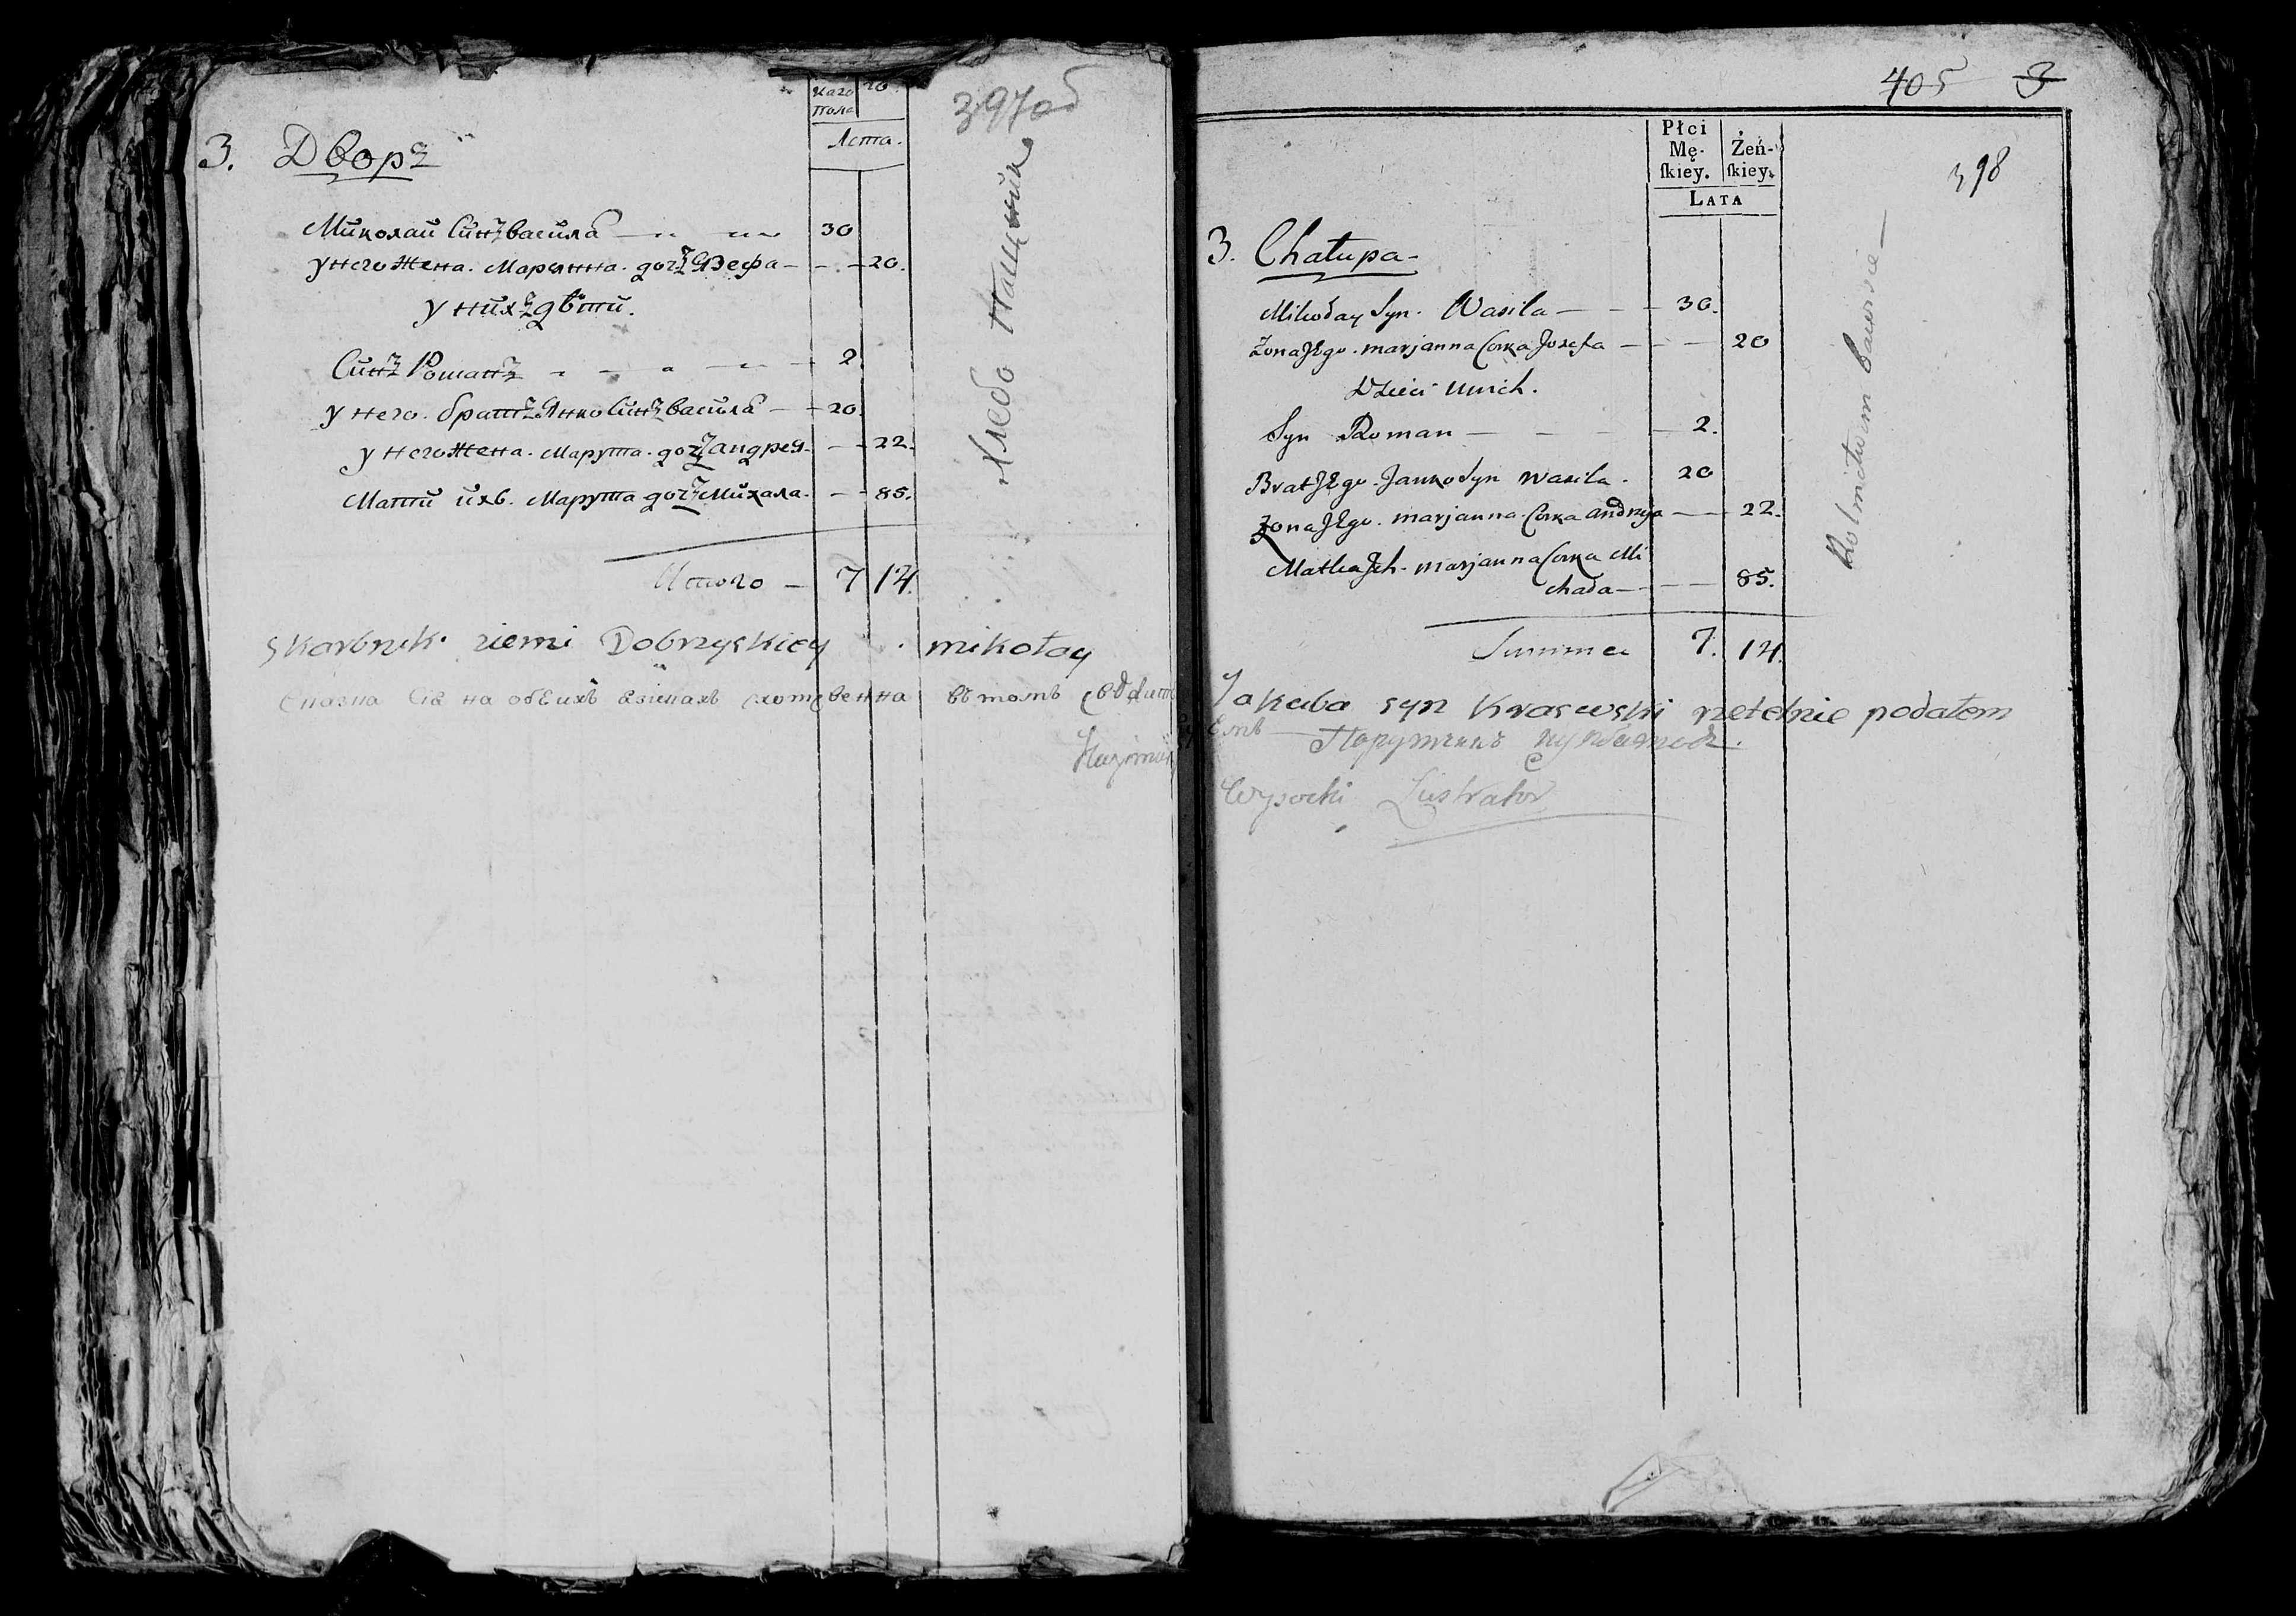 каго
пола
го
Лета.
397об
3. Дворъ
Миколаи Синъ Василя 30
у него Жена. Марянна. дочъ Юзефа 20.
у нихъ дѣти.
Синъ Романъ 2.
у него. братъ Янко Синъ Василя 20.
у него Жена. Марута. дочъ Андрея 22.
Мати ихъ. Марута дочъ Михала. 85.
Итого 7 14.
Хлебо Пашники
Skarbnik ziemi Dobrzyskiey mikołay
на обѣихъ въ томъ
Kazimierz
405 3
398
Płci
Mę-
ſkiey.
Żeń-
ſkiey.
LATA
3. Chałupa
Mikołay Syn. Wasila 30.
Zona JEgo. marjanna Corka Jozefa 20
Dzieci unich.
Syn Roman 2.
Brat JEgo. Janko Syn Wasila. 20
Zona JEgo. marjanna. Corka andreja 22.
Matka Jch. marjanna Corka Mi
chała 85.
Summa 7. 14.
Rolnictwem bawisie
Jakuba syn Krasewski rzetelnie podałem
Порутчикъ
Wysocki Lustrator